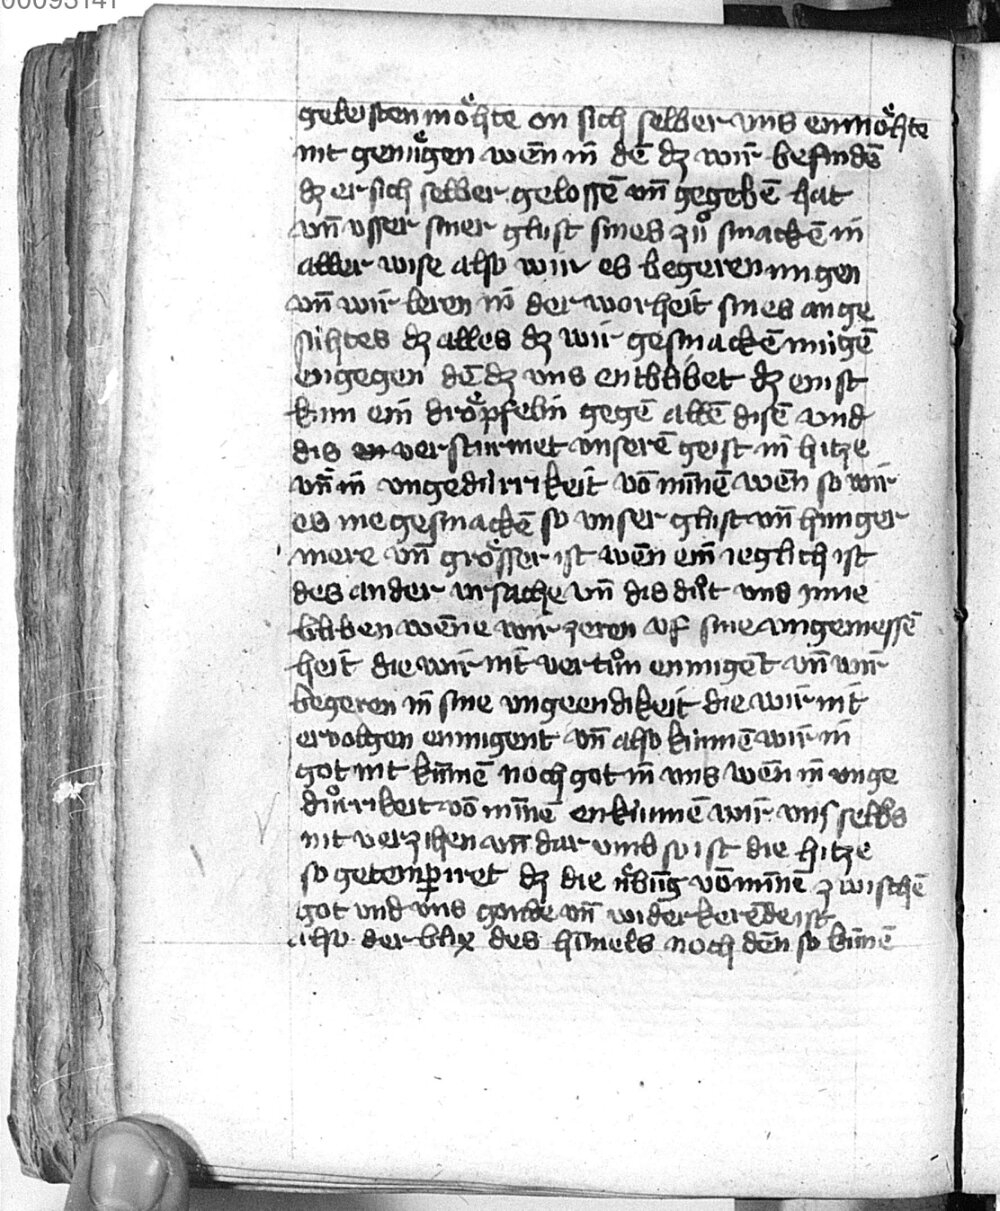 00093141
geleisten moͤhte on sich selber vns enmoͤhte
nit genuͤgen wēn in dē dz wir befindē
dz er sich selber gelossē vn̄ gegebē hat
vn̄ vsser siner glust sines zuͦ smackē in
aller wise also wir es begeren mugen
vn̄ wir leren in der worheit sines ange
sihtes dz alles dz wir gesmackē mugē
engegen dē dz vns entblibet dz enist
kum ein droͤpfelin gegē allē disē vnd
dis verstürmet vnserē geist in hitze
vn̄ in vngedurikeit vō minnē wēn so wir
es me gesmackē so vnser glust vn̄ hunger
mere vn̄ groͤsser ist wēn ein ieglich ist
des ander ursache vn̄ dis duͦt vns inne
bliben wēne wir zeren vf sine vngemessē
heit die wir nit vertuͦn enmugēt vn̄ wir
begeren in sine vngeendikeit die wir nit
ervolgen enmugent vn̄ also kunnē wir in
got nit kūmē noch got in vns wēn in vnge
durikeit vō minnē enkunnē wir vns selbs
nit verzihen vn̄ dar vmb so ist die hitze
so getemperiret dz die uͤbūg vō minnē zwischē
got vnd vns gonde vn̄ widerkerēde ist
also der blix des himels noch dēn so kunnē